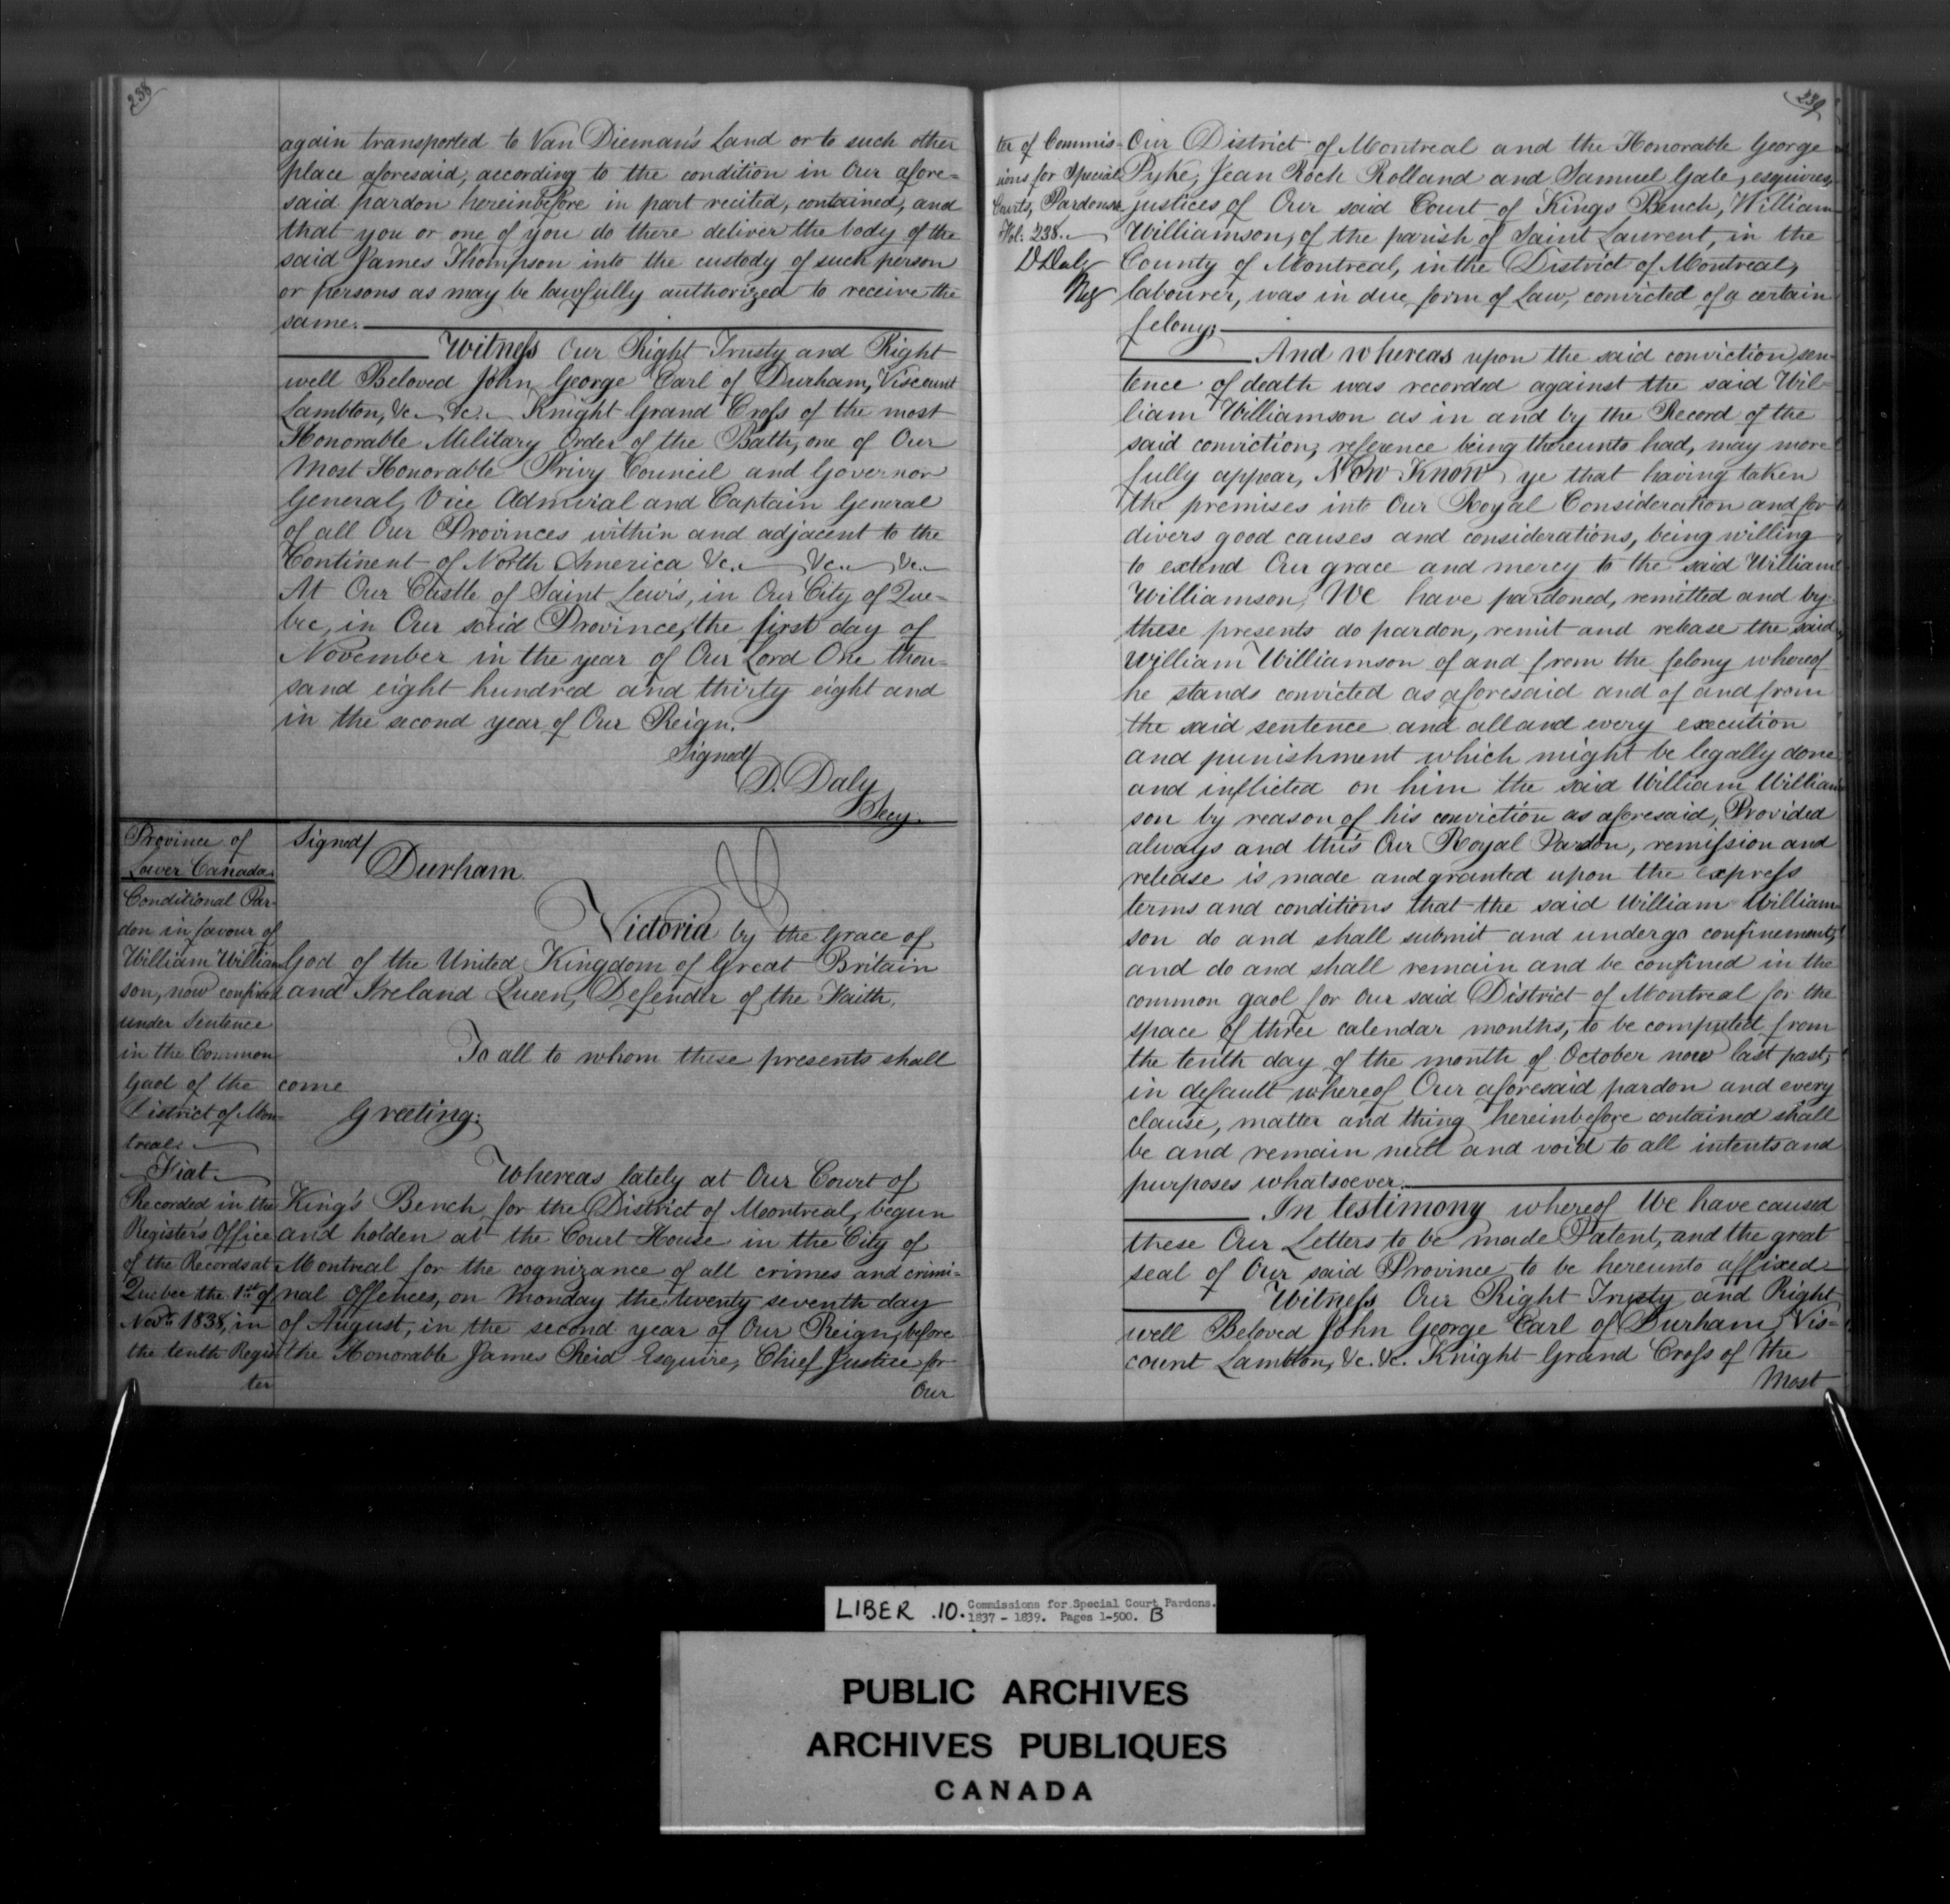 238
again transported to Van Dieman's Land or to such other
place aforesaid, according to the condition in Our afore=
said pardon hereinbefore in part recited, contained, and
that you or one of you do there deliver the body of the
said James Thompson into the custody of such person
or persons as may be lawfully authorized to receive the
same.
Witness Our Right Trusty and Right
well Beloved John George Earl of Durham, Viscount
Lambton, &c. &c. Knight Grand Cross of the most
Honorable Military Order of the Bath, one of Our
Most Honorable Privy Council and Governor
General, Vice Admiral and Captain General
of all Our Provinces within and adjacent to the
Continent of North America &c. &c. &c.
At Our Castle of Saint Lewis, in Our City of Que=
bec, in Our said Province, the first day of
November in the year of Our Lord One thou=
sand eight hundred and thirty eight and
in the second year of Our Reign.
Signed/
D. Daly
Secy.
Province of
Lower Canada.
Conditional Par-
don in favour of
William William
son, now confined
under Sentence
in the Common
Gaol of the
District of Mon-
treal.
Fiat.
Recorded in the
Register's Office
of the Records at
Quebec the 1st of
Novr. 1838, in
the tenth Regis
ter
Signed/
Durham.
Victoria by the Grace of
God of the United Kingdom of Great Britain
and Ireland Queen, Defender of the Faith.
To all to whom these presents shall
come
Greeting:
Whereas lately at Our Court of
King's Bench for the District of Montreal, begun
and holden at the Court House in the City of
Montreal for the cognizance of all crimes and crimi=
nal Offences, on Monday the twenty seventh day
of August, in the second year of Our Reign, before
the Honorable James Reid Esquire, Chief Justice for
Our
239
ter of Commis-
sions for Special
Courts, Pardons &c.
Fol. 238.
D Daly
Reg
Our District of Montreal and the Honorable George
Pyke, Jean Roch Rolland and Samuel Gale, esquires,
justices of Our said Court of Kings Bench, William
Williamson, of the parish of Saint Laurent, in the
County of Montreal, in the District of Montreal,
labourer, was in due form of Law, convicted of a certain
felony;
And whereas upon the said conviction sen-
tence of death was recorded against the said Wil=
liam Williamson as in and by the Record of the
said conviction, reference being thereunto had, may more
fully appear, Now Know ye that having taken
the premises into Our Royal Consideration and for
divers good causes and considerations, being willing
to extend Our grace and mercy to the said William
Williamson, We have pardoned, remitted and by
these presents do pardon, remit and release the said
William Williamson of and from the felony whereof
he stands convicted as aforesaid and of and from
the said sentence and all and every execution
and punishment which might be legally done
and inflicted on him the said William William
son by reason of his conviction as aforesaid, Provided
always and this Our Royal Pardon, remission and
release is made and granted upon the express
terms and conditions that the said William William-
son do and shall submit and undergo confinement,
and do and shall remain and be confined in the
common gaol for Our said District of Montreal for the
space of three calendar months, to be computed from
the tenth day of the month of October now last past,
in default whereof Our aforesaid pardon and every
clause, matter and thing hereinbefore contained shall
be and remain null and void to all intents and
purposes whatsoever.
In testimony whereof We have caused
these Our Letters to be made Patent, and the great
seal of Our said Province to be hereunto affixed
Witness Our Right Trusty and Right
well Beloved John George Earl of Durham, Vis=
count Lambton, &c. &c. Knight Grand Cross of the
Most
LIBER .10. Commissions for Special Court Pardons.
1837 - 1839. Pages 1-500. B
PUBLIC ARCHIVES
ARCHIVES PUBLIQUES
CANADA